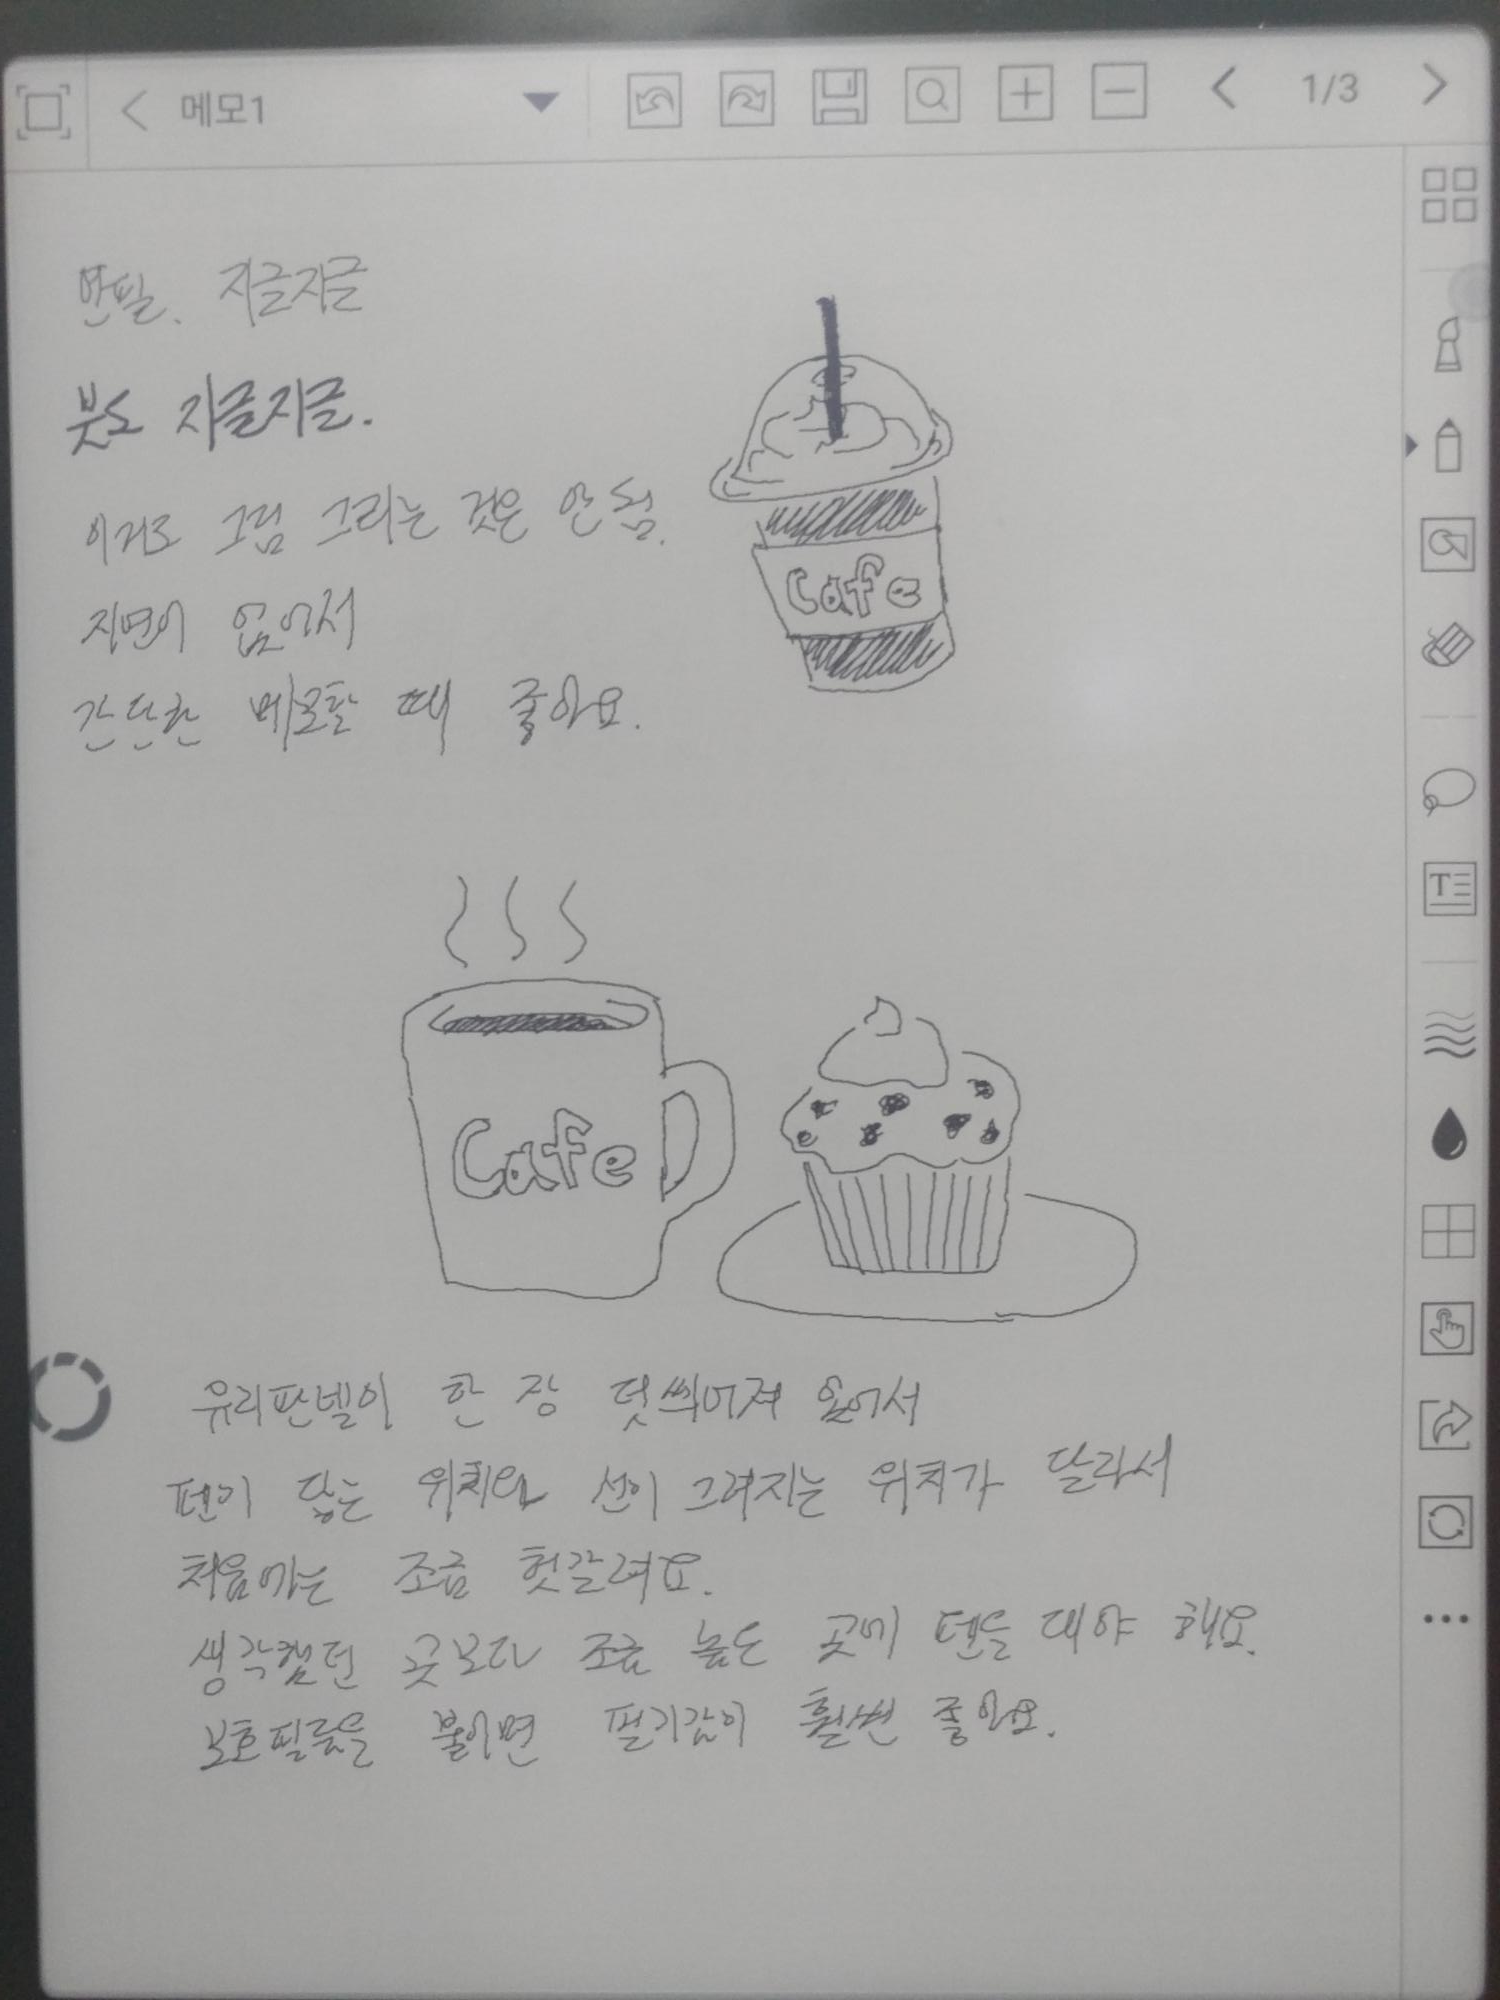 메모1
1/3
연필. 지글지글
붓도 지글지글.
이거로 그림 그리는 것은 안 됨.
지연이 있어서
간단한 메모할 때 좋아요.
Cafe
Cafe
유리판넬이 한 장 덧씌어져 있어서
펜이 닿는 위치와 선이 그려지는 위치가 달라서
처음에는 조금 헛갈려요.
생각했던 곳보다 조금 높은 곳에 펜을 대야 해요.
보호필름을 붙이면 필기감이 훨씬 좋아요.
T